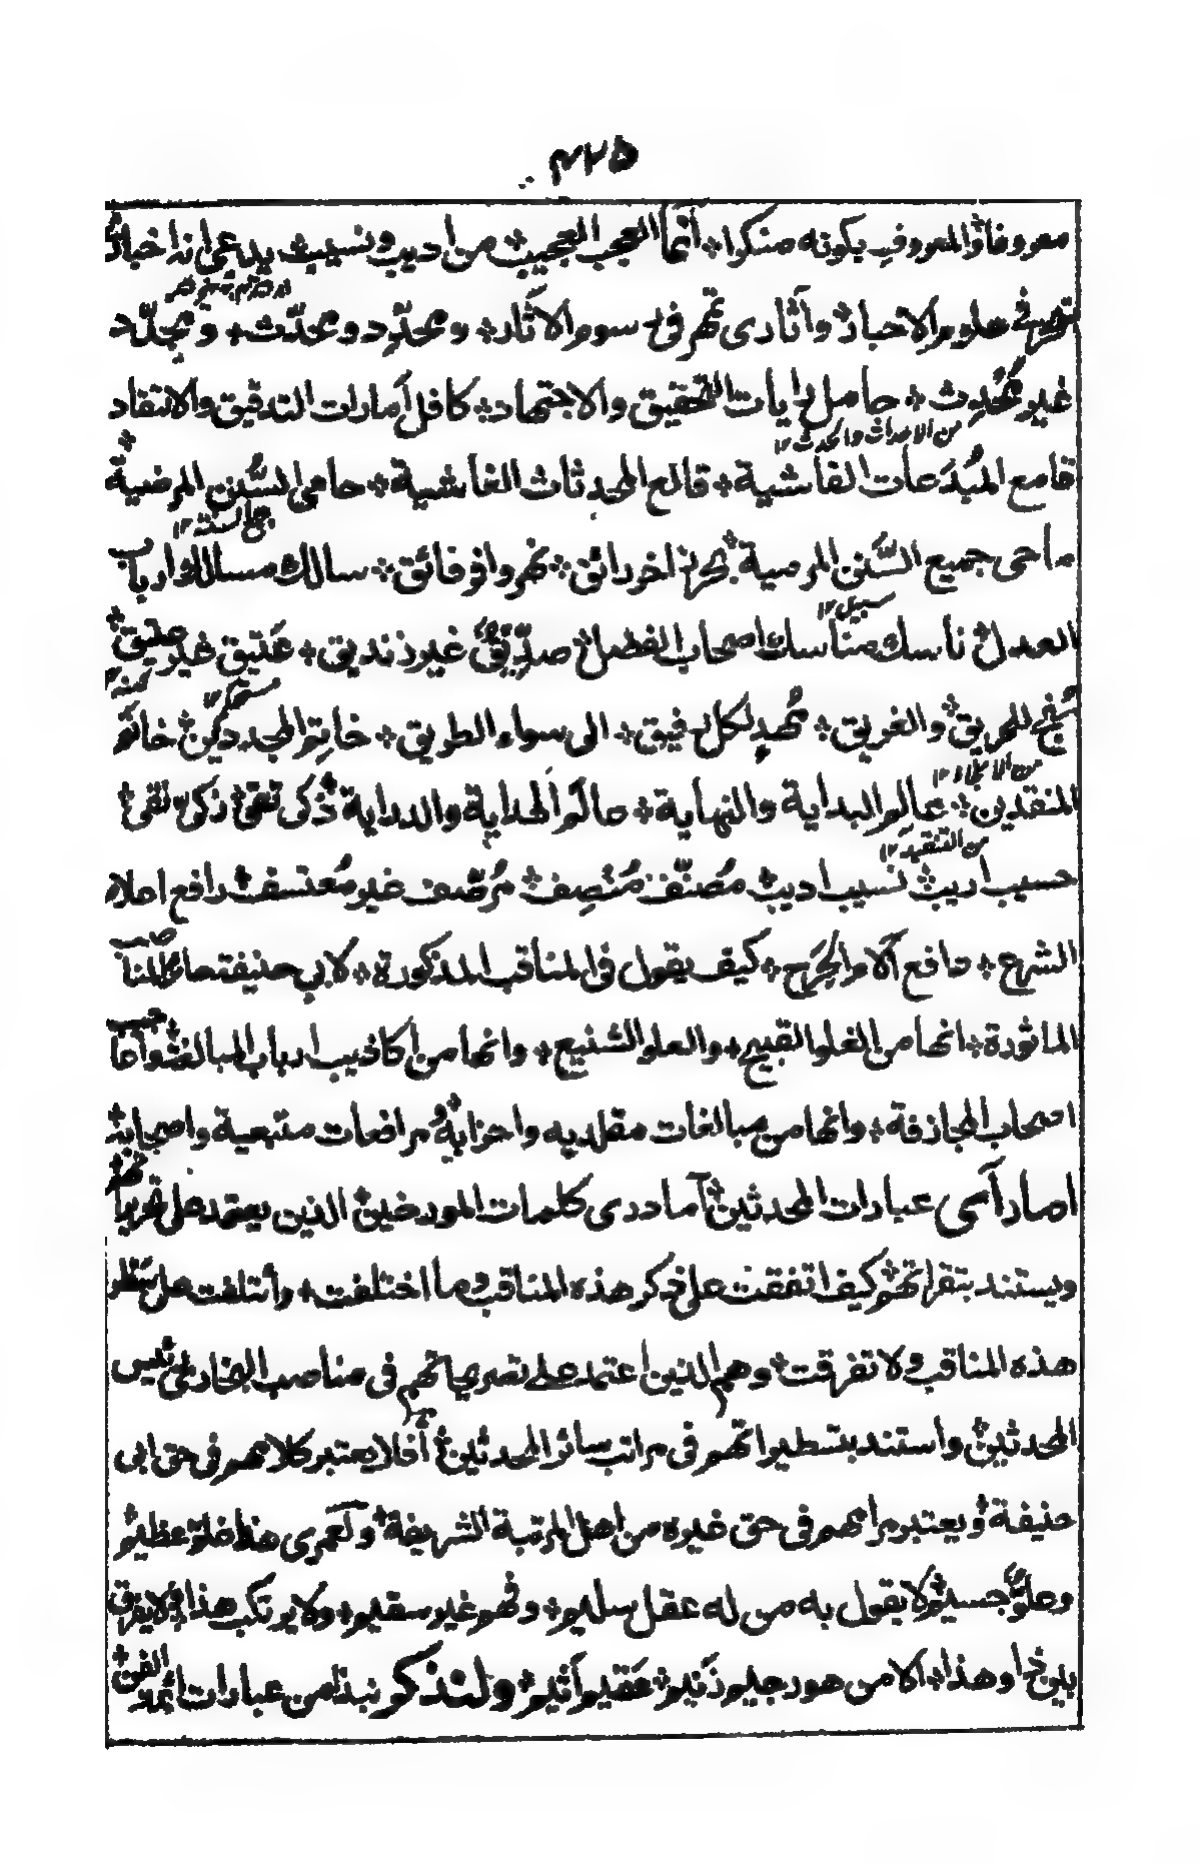 ٤٢٥
معروفا والمعروف بكونه منكرا انما العجب العجيب من اديب ونسيب يدعى انه اخبارى
تمهر فى علوم الاخبار وآثارى تمهر فى رسوم الآثار ومحدّد ومحدّث ومجدّد
غير مُحْدِث حامل رايات التحقيق والاجتهاد كافل أمارات التدقيق والانتقاد
من الاحداث والحدث ١٢
قامع المُبدَعات الفاشية قالع المحدثات الغاشية حامى السُّنن المرضية
جمع السنة ١٢
ماحى جميع السَّنن المرمية بحر زاخر رائق نهر وافر فائق سالك مسالك ارباب
سبيل ١٢
العدل ناسك مناسك اصحاب الفضل صدّيق غير زنديق عَتيق غير
للحريق والغريق مُمهد لكل رفيق الى سواء الطريق خاتم المجددين خاتم
المنقدين عالم البداية والنهاية حاكم الهداية والدراية ذكى تقى زكى نقى
من التنقيد ١٢
حسيب اريب نسيب اديب مُصنّف مُنصِف مُرصّف غير مُعتسف رافع اعلام
الشرع دافع آلام الجَرح كيف يقول فى المناقب المذكورة لابى حنيفة صاحب المناقب
الماثورة انها من الغلو القبيح والعلو الشنيع وانها من أكاذيب ارباب المبالغة واعاجيب
اصحاب المجازفة وانها من مبالغات مقلديه واحزابه ومرافعات متبعيه واصحابه
اما رأى عبارات المحدثين أما درى كلمات المورخين الذين يعتمد على تحريراتهم
ويستند بتقراتهم كيف اتفقت على ذكر هذه المناقب وما اختلفت وأتلفت على سطر
هذه المناقب ولا تفرقت وهم الذين اعتمد على تصريحاتهم فى مناصب البخارى رئيس
المحدثين واستند بتسطيراتهم فى مراتب سائر المحدثين أفلا يعتبر كلامهم فى حق ابى
حنيفة ويعتبر مرامهم فى حق غيره من اهل المرتبة الشريفة ولَعمرى هذا غلو عظيم
وعلوّ جسيم لا يقول به من له عقل سليم وفهم غير سقيم ولا يرتكب هذا ولا يفرق
بين ذا وهذا الا من هو رجيم زَنيم عَقيم أثيم ولنذكر نبذا من عبارات ائمة الفن